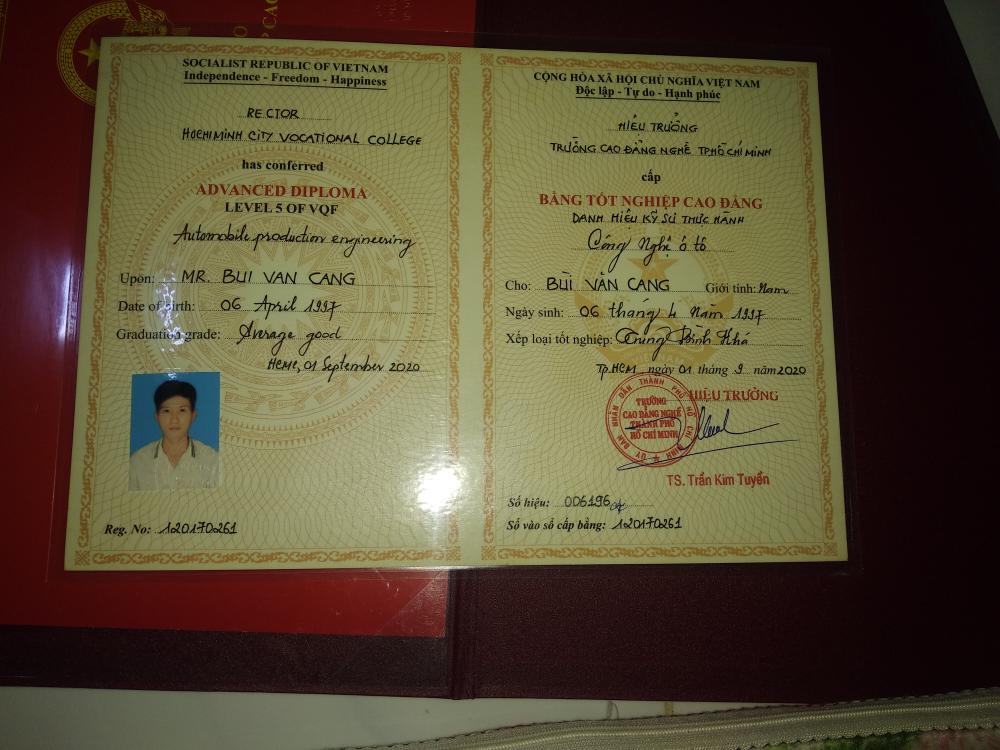 SOCIALIST REPUBLIC OF VIETNAM
Independence - Freedom - Happiness
RECTOR
HOCHIMINH CITY VOCATIONAL COLLEGE
has conferred
ADVANCED DIPLOMA
LEVEL 5 OF VQF
Automobile production engineering
Upon: MR. BUI VAN CANG
Date of birth: 06 April 1997
Graduation grade: Average good
HCMC, 01 September 2020
Reg. No: 120170261
CỘNG HÒA XÃ HỘI CHỦ NGHĨA VIỆT NAM
Độc lập - Tự do - Hạnh phúc
HIỆU TRƯỞNG
TRƯỜNG CAO ĐẲNG NGHỀ TP.HỒ CHÍ MINH
cấp
BẰNG TỐT NGHIỆP CAO ĐẲNG
DANH HIỆU KỸ SƯ THỰC HÀNH
Công Nghệ ô tô
Cho: BÙI VĂN CANG Giới tính: Nam
Ngày sinh: 06 tháng 4 Năm 1997
Xếp loại tốt nghiệp: Trung Bình Khá
Tp.HCM, ngày 01 tháng 9 năm 2020
HIỆU TRƯỞNG
ỦY BAN NHÂN DÂN THÀNH PHỐ HỒ CHÍ MINH
TRƯỜNG
CAO ĐẲNG NGHỀ
THÀNH PHỐ
HỒ CHÍ MINH
TS. Trần Kim Tuyền
Số hiệu: 006196
Số vào sổ cấp bằng: 120170261